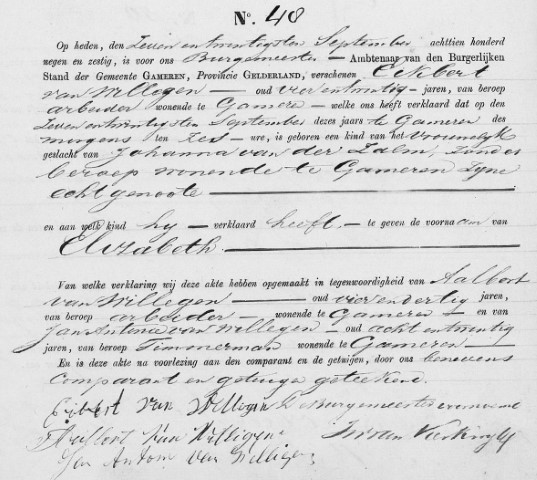 No. 48
Op heden, den Zeven en twintigsten September achttien honderd
negen en zestig, is voor ons Burgemeester Ambtenaar van den Burgerlijken
Stand der Gemeente GAMEREN, Provincie GELDERLAND, verschenen Eckbert
van Willegen oud vier en twintig jaren, van beroep
arbeider wonende te Gameren welke ons heeft verklaard dat op den
Zeven en twintigsten September dezes jaars te Gameren des
morgens ten zes ure, is geboren een kind van het vrouwelijk
geslacht van Johanna van der Zalm, zonder
beroep wonende te Gameren zijne
echtgenoote
en aan welk kind hij verklaard heeft te geven de voornaam van
Elizabeth.
Van welke verklaring wij deze akte hebben opgemaakt in tegenwoordigheid van Aalbert
van Willegen oud vier en dertig jaren,
van beroep arbeider wonende te Gameren en van
Jan Antonie van Willegen oud acht en twintig
jaren, van beroep Timmerman wonende te Gameren
En is deze akte na voorlezing aan den comparant en de getuigen, door ons benevens
comparant en getuigen geteekend.
Eijbert van Willegen de Burgemeester voornoemd
Aalbert van Willigen
Jan Antonie van Willigen